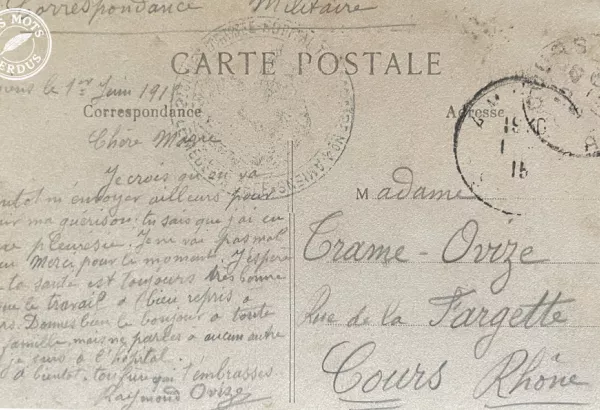 S MOTS
PERDUS
Correspondance Militaire
CARTE POSTALE
le 1er Juin 191
Correspondance
Adresse
19
1
15
Chère Mamie
Je crois qu'on va
m'envoyer ailleurs pour
ma guérison. tu sais que j'ai eu
pleuresie. Je ne vai pas mal
Merci pour le moment. J'espère
ta santé est toujours très bonne
que le travail a bien repris a
Donnes bien le bonjour a toute
famille, mais ne parler a aucun autre
je suis a l'hôpital.
a bientot. ton qui t'embrasses
Raymond Ovize
Madame
Trame-Ovize
Rue de la Fargette
Cours Rhône